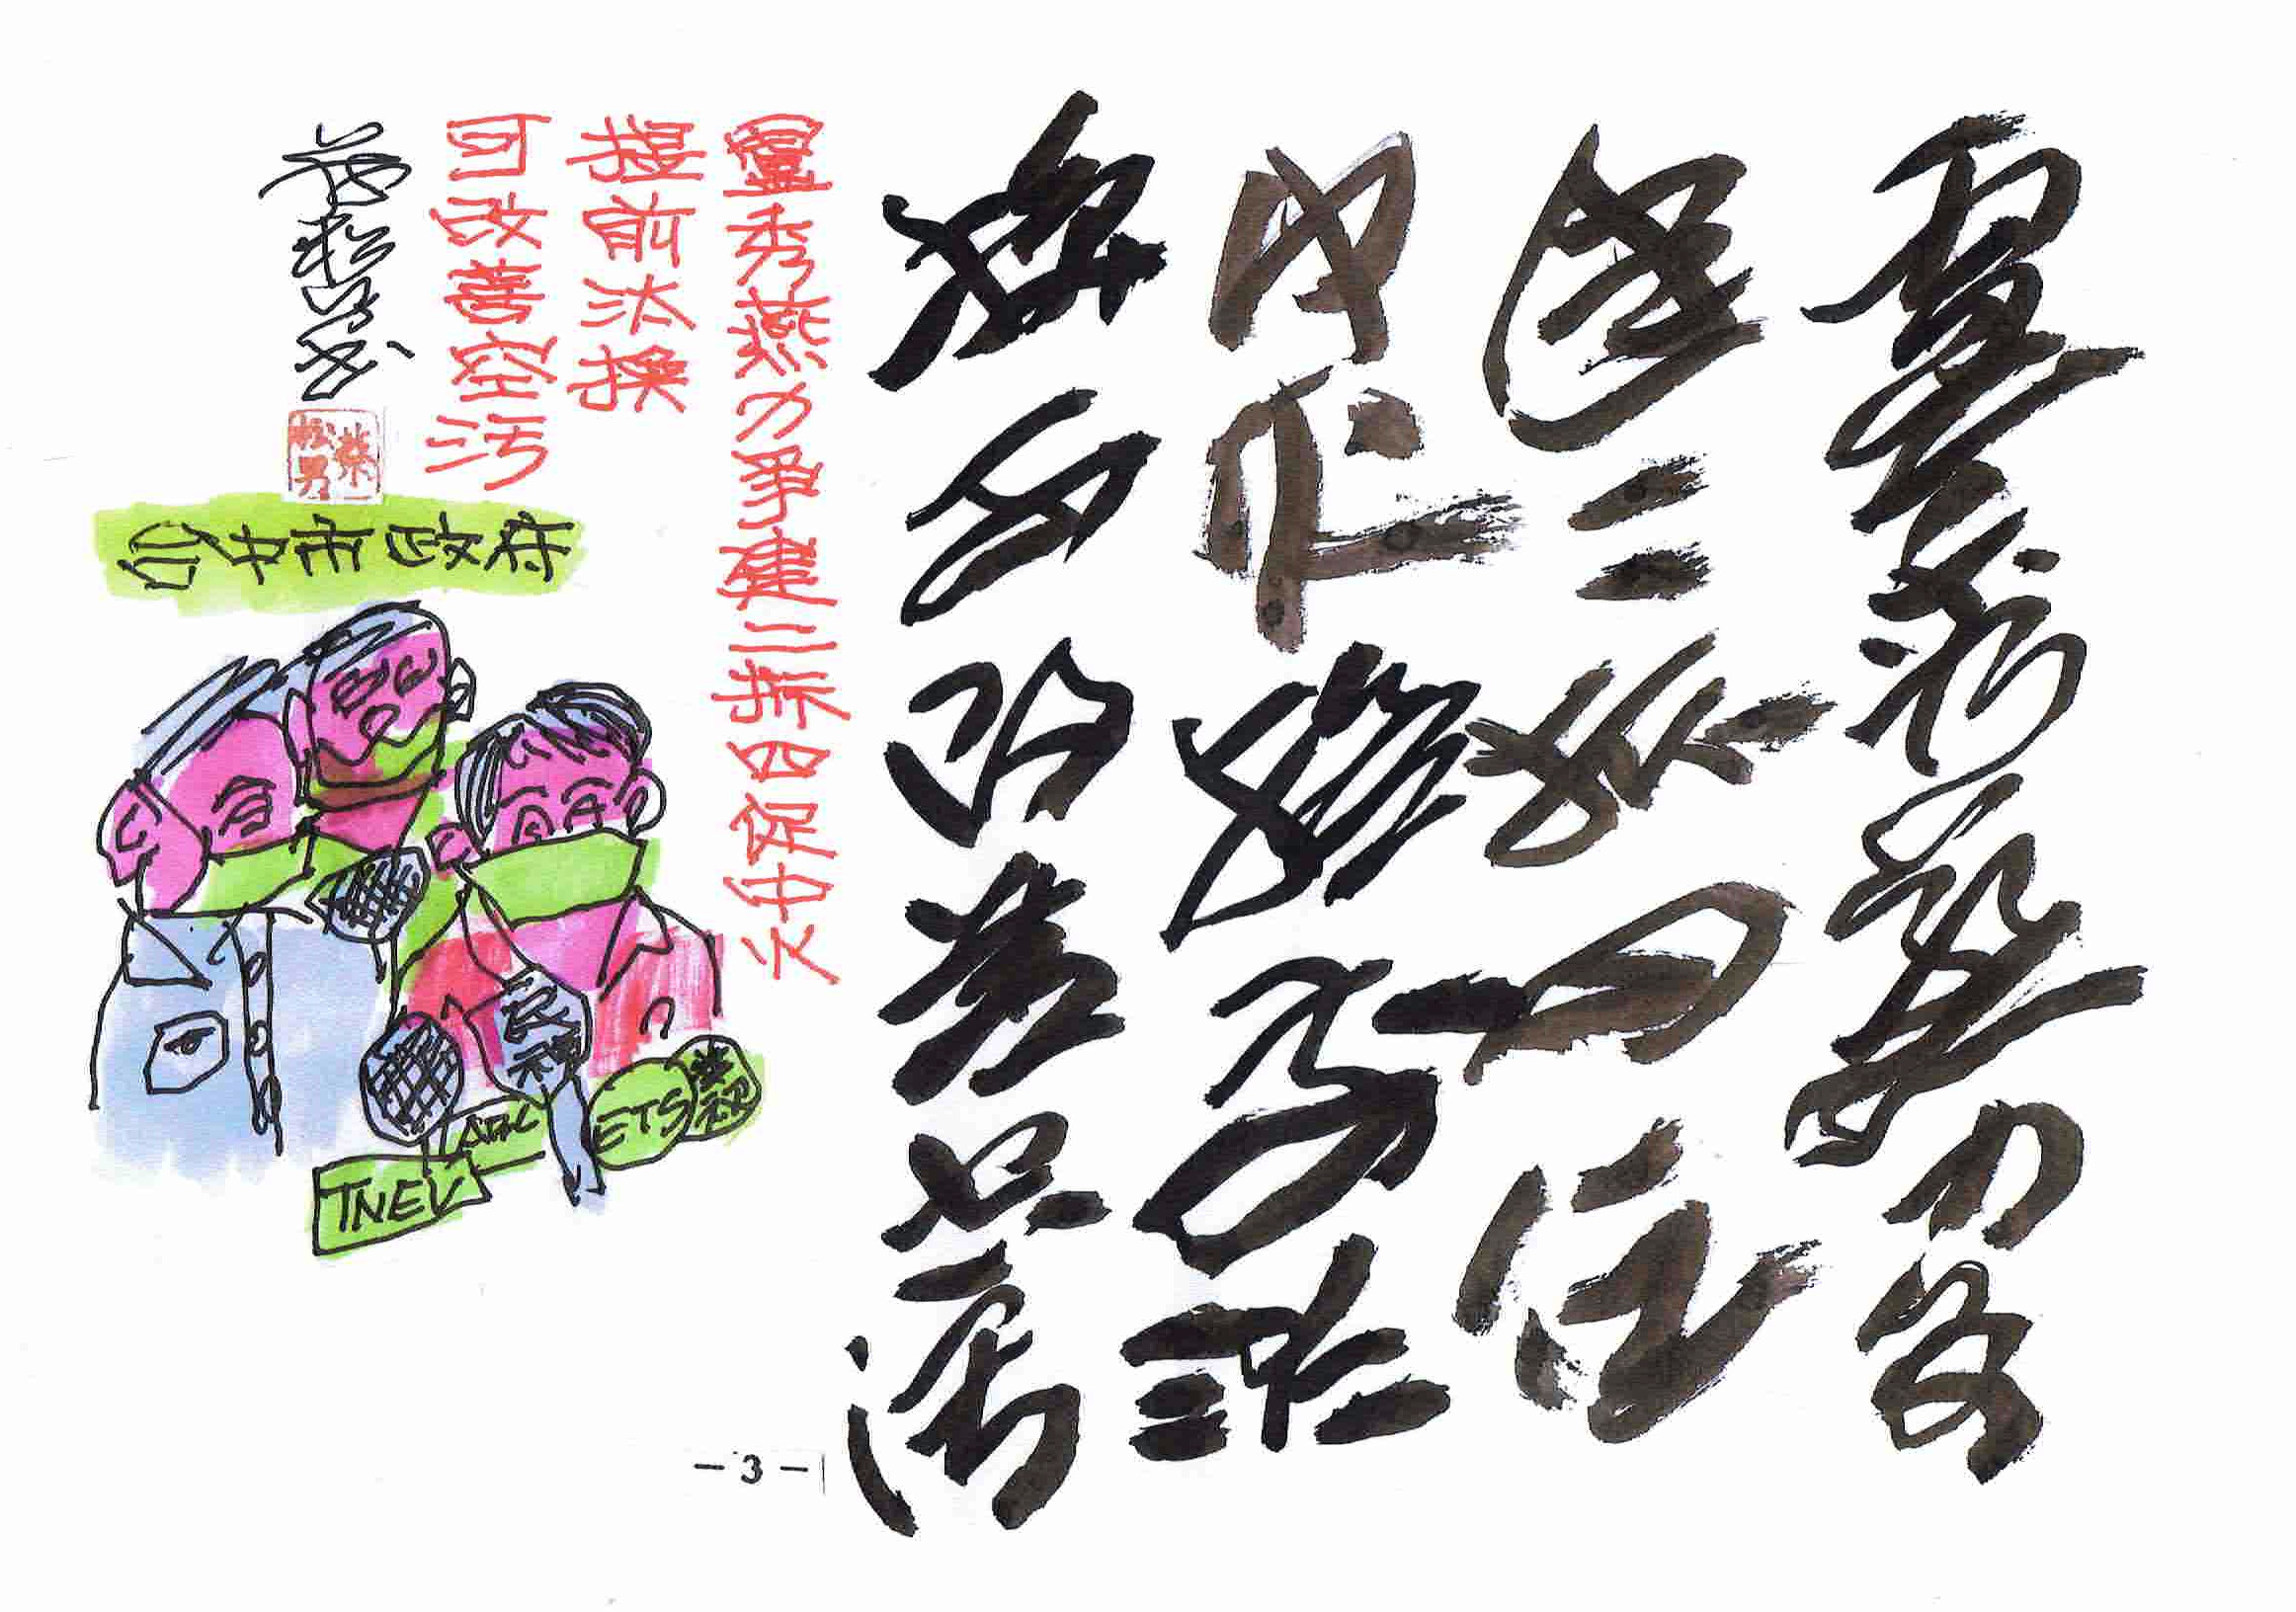 盧秀燕力爭
建三拆四促
中火提前汰
換可改善空污
盧秀燕力爭建三拆四促中火
提前汰換
可改善空污
台中市政府
民視
ETS
TNEV
-3-